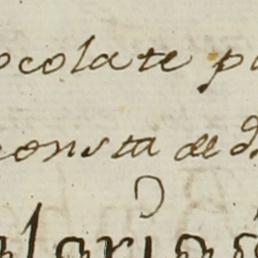 ocolate p
consta de d
alaria